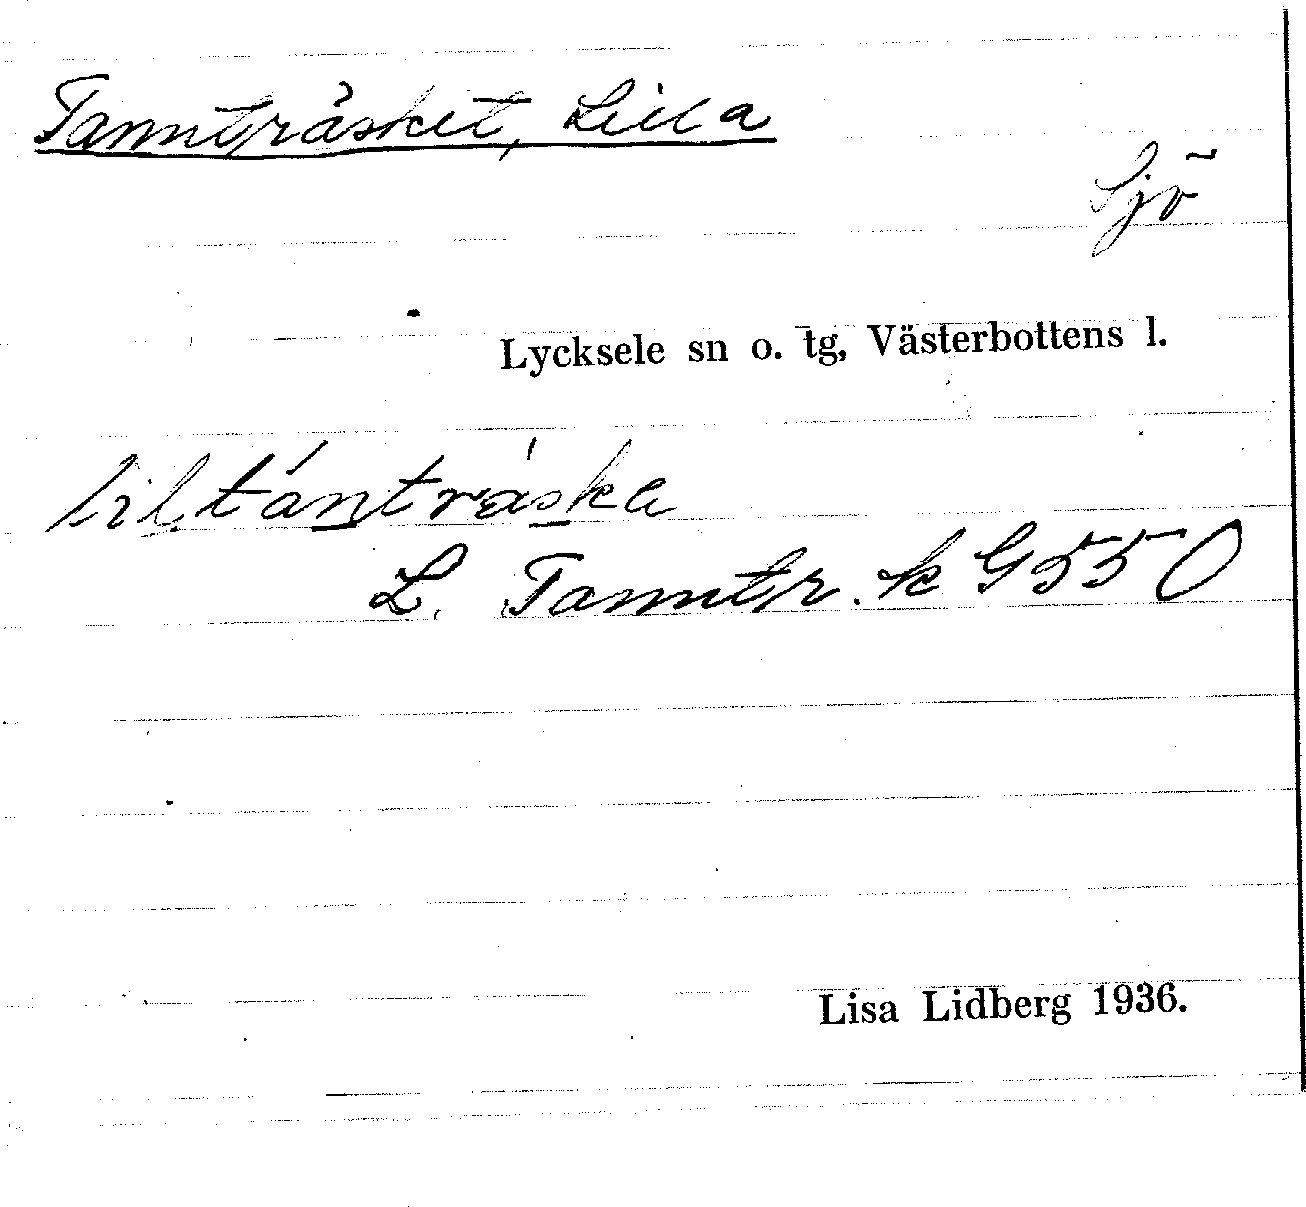 Tannträsket, Lilla
Sjö
Lycksele sn o. tg, Västerbottens l.
liltántráska
L. Tanntr. k G550
Lisa Lidberg 1936.